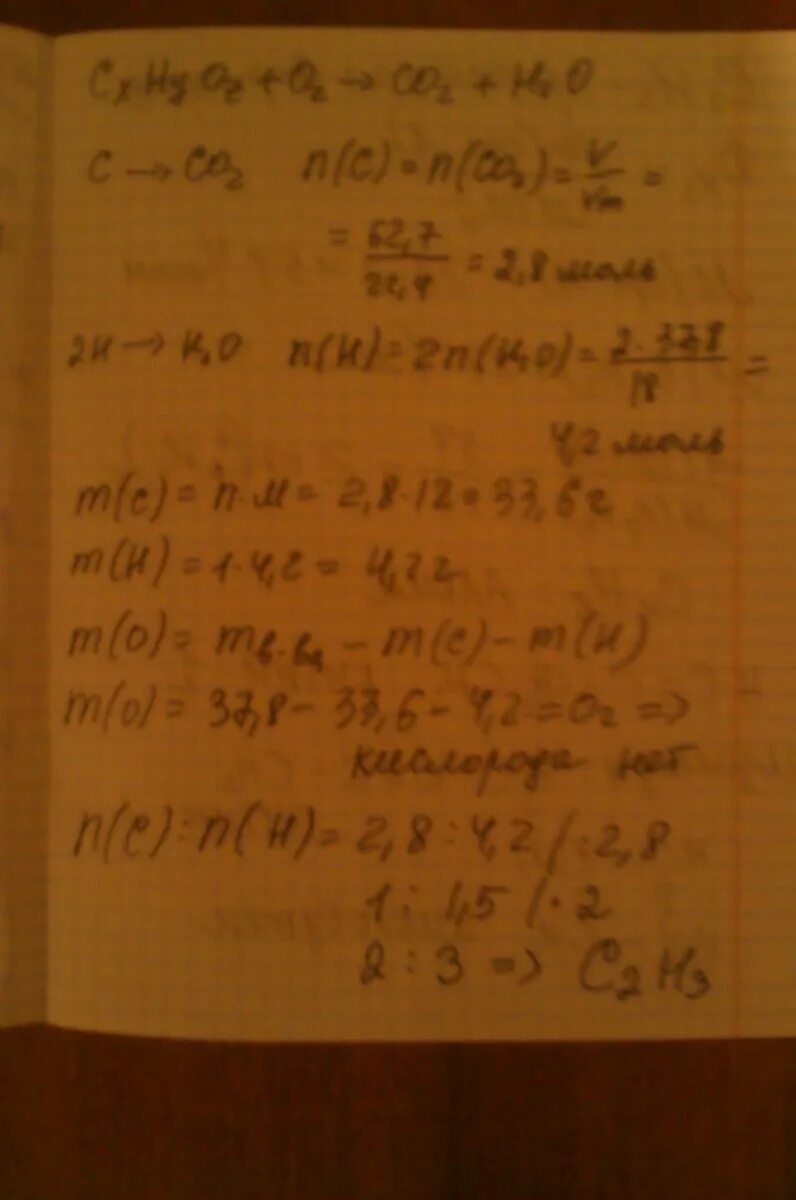 CxHyOz + O2 → CO2 + H2O
C → CO2 n(C) = n(CO2) = V/Vm =
= 62,7/22,4 = 2,8 моль
2H → H2O n(H) = 2n(H2O) = 2·37,8/18 =
4,2 моль
m(C) = n·M = 2,8·12 = 33,6 г
m(H) = 1·4,2 = 4,2 г
m(O) = mв-ва – m(C) – m(H)
m(O) = 37,8 – 33,6 – 4,2 = 0г =>
кислорода нет
n(C) : n(H) = 2,8 : 4,2 / : 2,8
1 : 1,5 / · 2
2 : 3 => C2H3